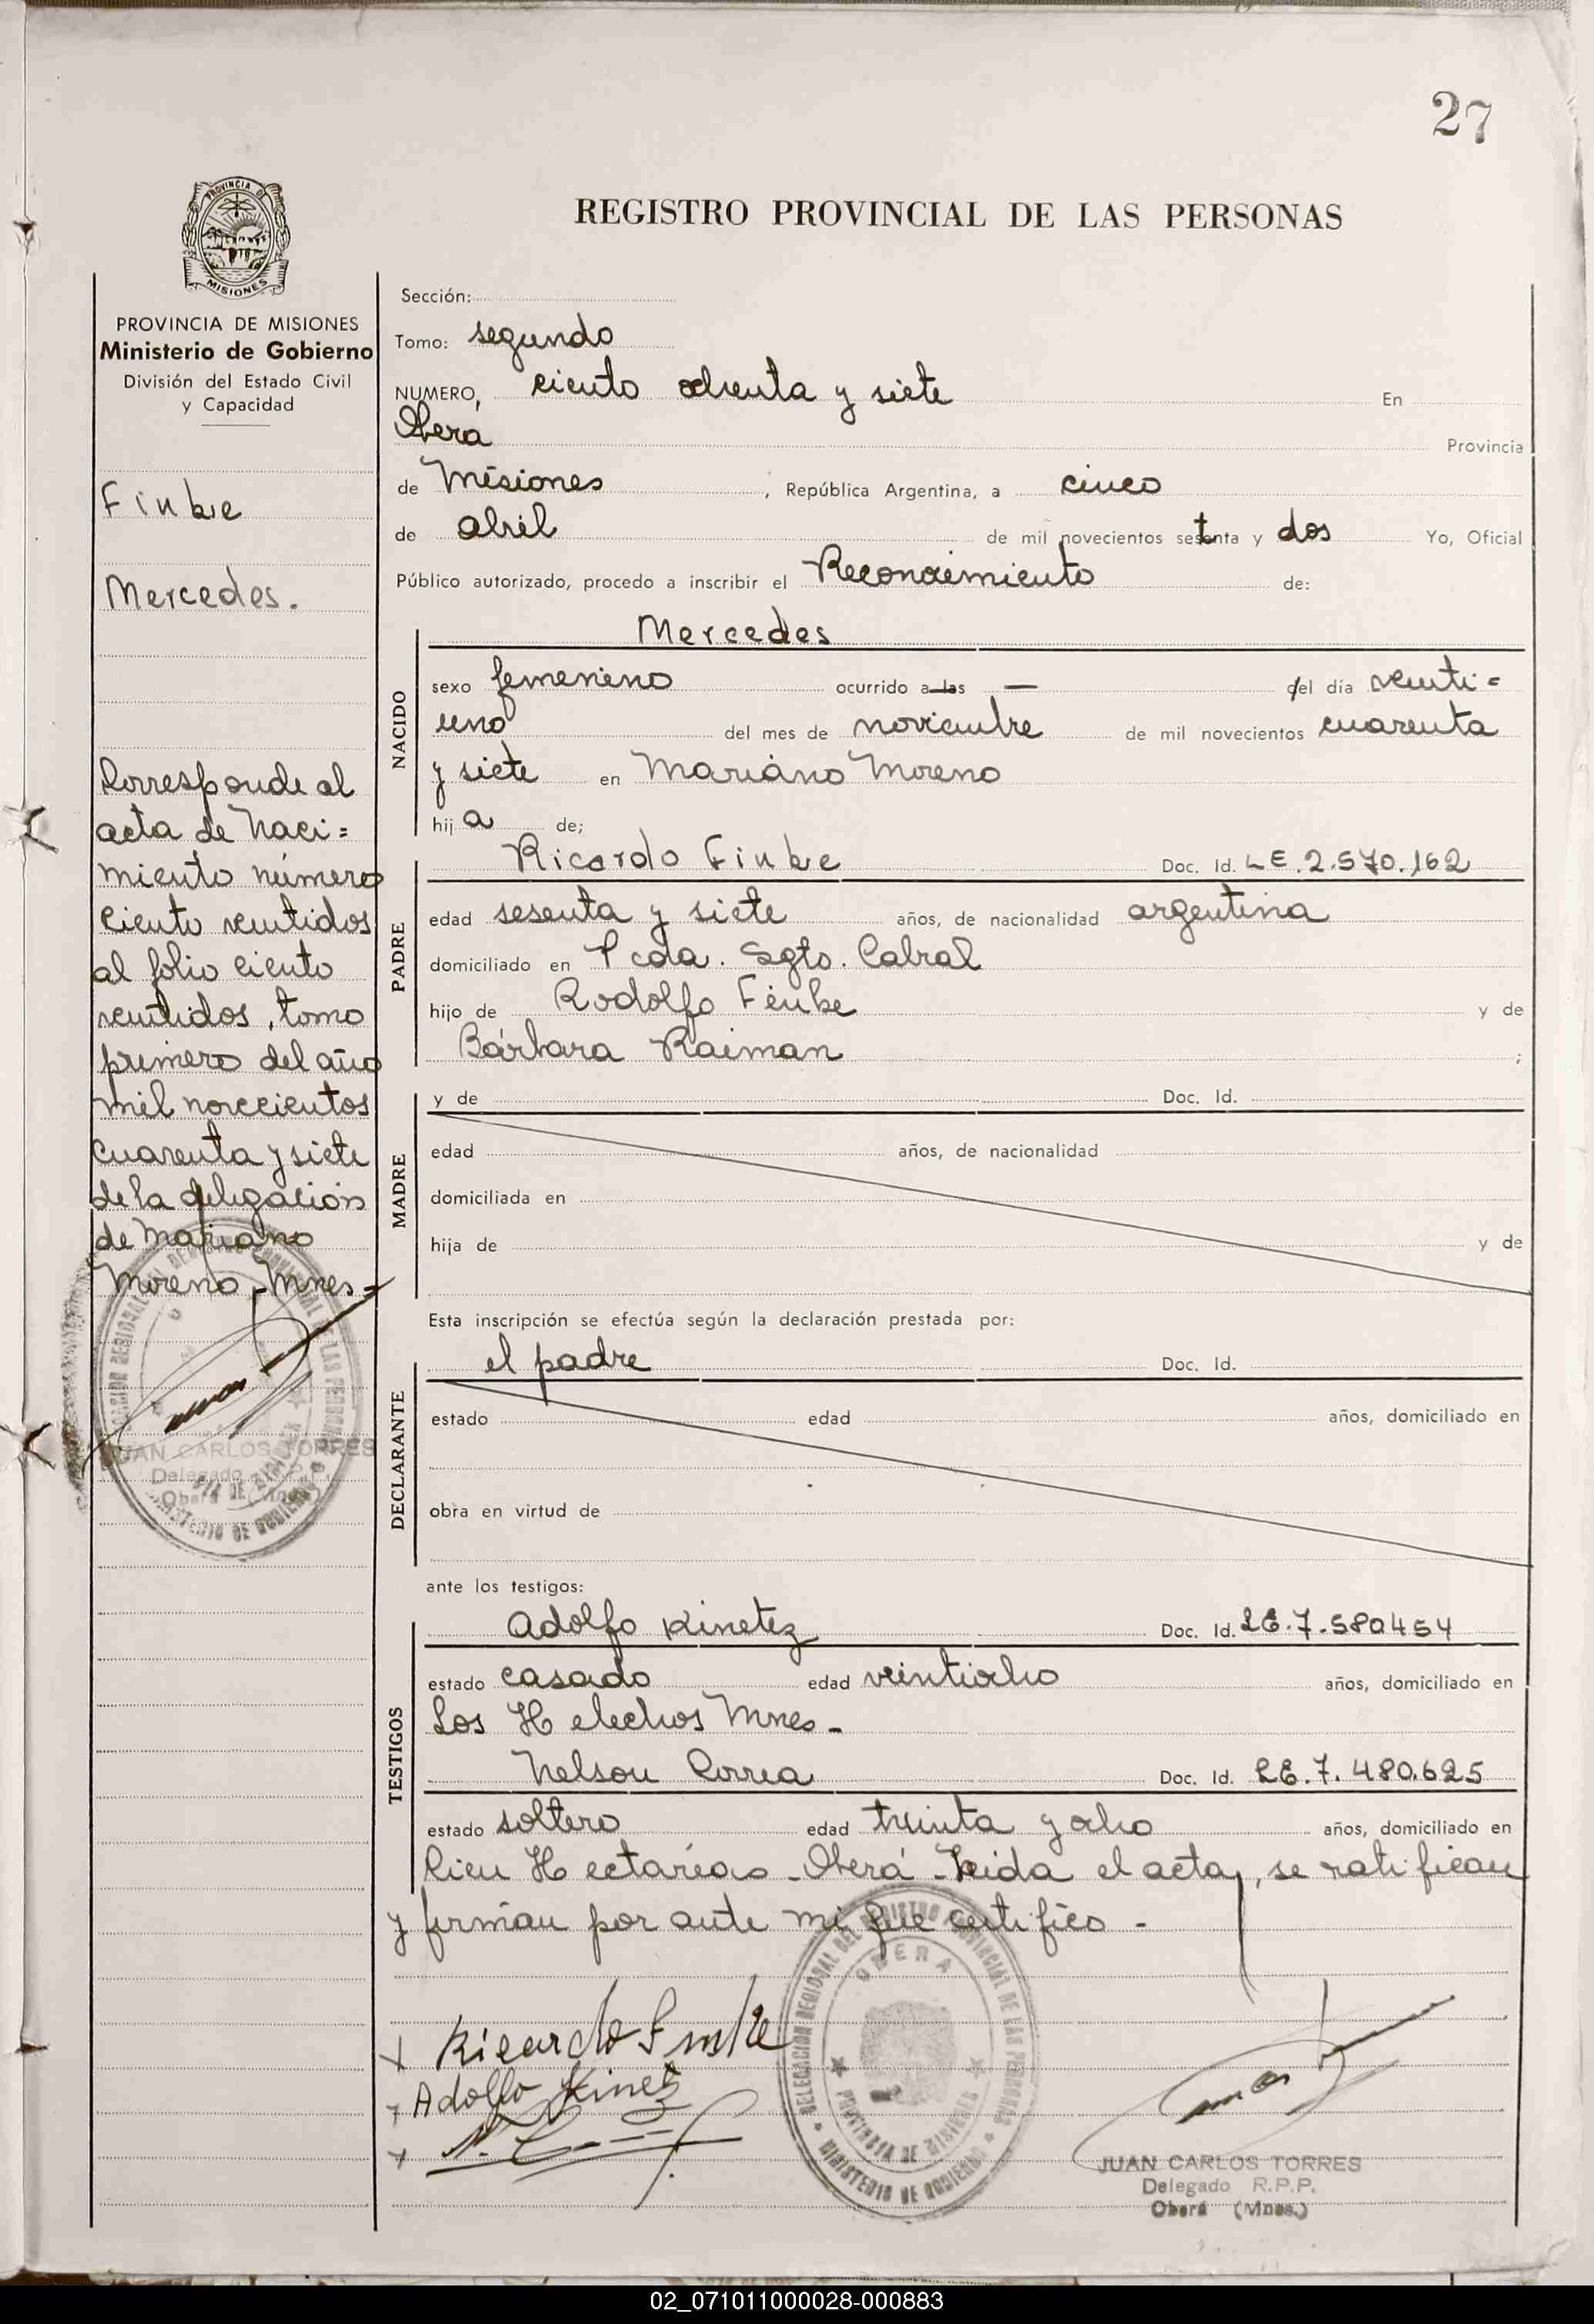 27
REGISTRO PROVINCIAL DE LAS PERSONAS
PROVINCIA DE
MISIONES
PROVINCIA DE MISIONES
Ministerio de Gobierno
División del Estado Civil
y Capacidad
Finke
Mercedes.
Corresponde al
acta de Naci=
miento número
Ciento ventidos
al folio ciento
ventidos, tomo
primero del año
mil novecientos
cuarenta y siete
de la delegación
de Mariano
Moreno - Mnes -
JUAN CARLOS TORRES
Delegado R.P.P.
Oberá (Mnes.)
Sección:
Tomo: segundo
NUMERO, ciento ochenta y siete En
Obera Provincia
de Misiones, República Argentina, a cinco
de abril de mil novecientos setenta y dos Yo, Oficial
Público autorizado, procedo a inscribir el Reconocimiento de:
NACIDO
Mercedes
sexo femenino ocurrido a las — del día venti=
uno del mes de noviembre de mil novecientos cuarenta
y siete en Mariano Moreno
hija de;
PADRE
Ricardo Finke Doc. Id. LE. 2.570.162
edad sesenta y siete años, de nacionalidad argentina
domiciliado en Pcda. Sgto. Cabral
hijo de Rodolfo Finke y de
Bárbara Raiman ;
MADRE
y de Doc. Id.
edad años, de nacionalidad
domiciliada en
hija de y de
Esta inscripción se efectúa según la declaración prestada por:
DECLARANTE
el padre Doc. Id.
estado edad años, domiciliado en
obra en virtud de
ante los testigos:
TESTIGOS
Adolfo Kinetz Doc. Id. LE. 7.580454
estado casado edad veintiocho años, domiciliado en
Los Helechos Mnes -
Nelson Correa Doc. Id. LE. 7.480.625
estado soltero edad treinta y ocho años, domiciliado en
Cien Hectáreas - Oberá - Leida el acta, se ratifican
y firman por ante mi que certifico -
x Ricardo Finke
x Adolfo Kinetz
x
DELEGACION REGIONAL DEL REGISTRO PROVINCIAL DE LAS PERSONAS
OBERA
PROVINCIA DE MISIONES
MINISTERIO DE GOBIERNO
JUAN CARLOS TORRES
Delegado R.P.P.
Oberá (Mnes.)
02_071011000028-000883